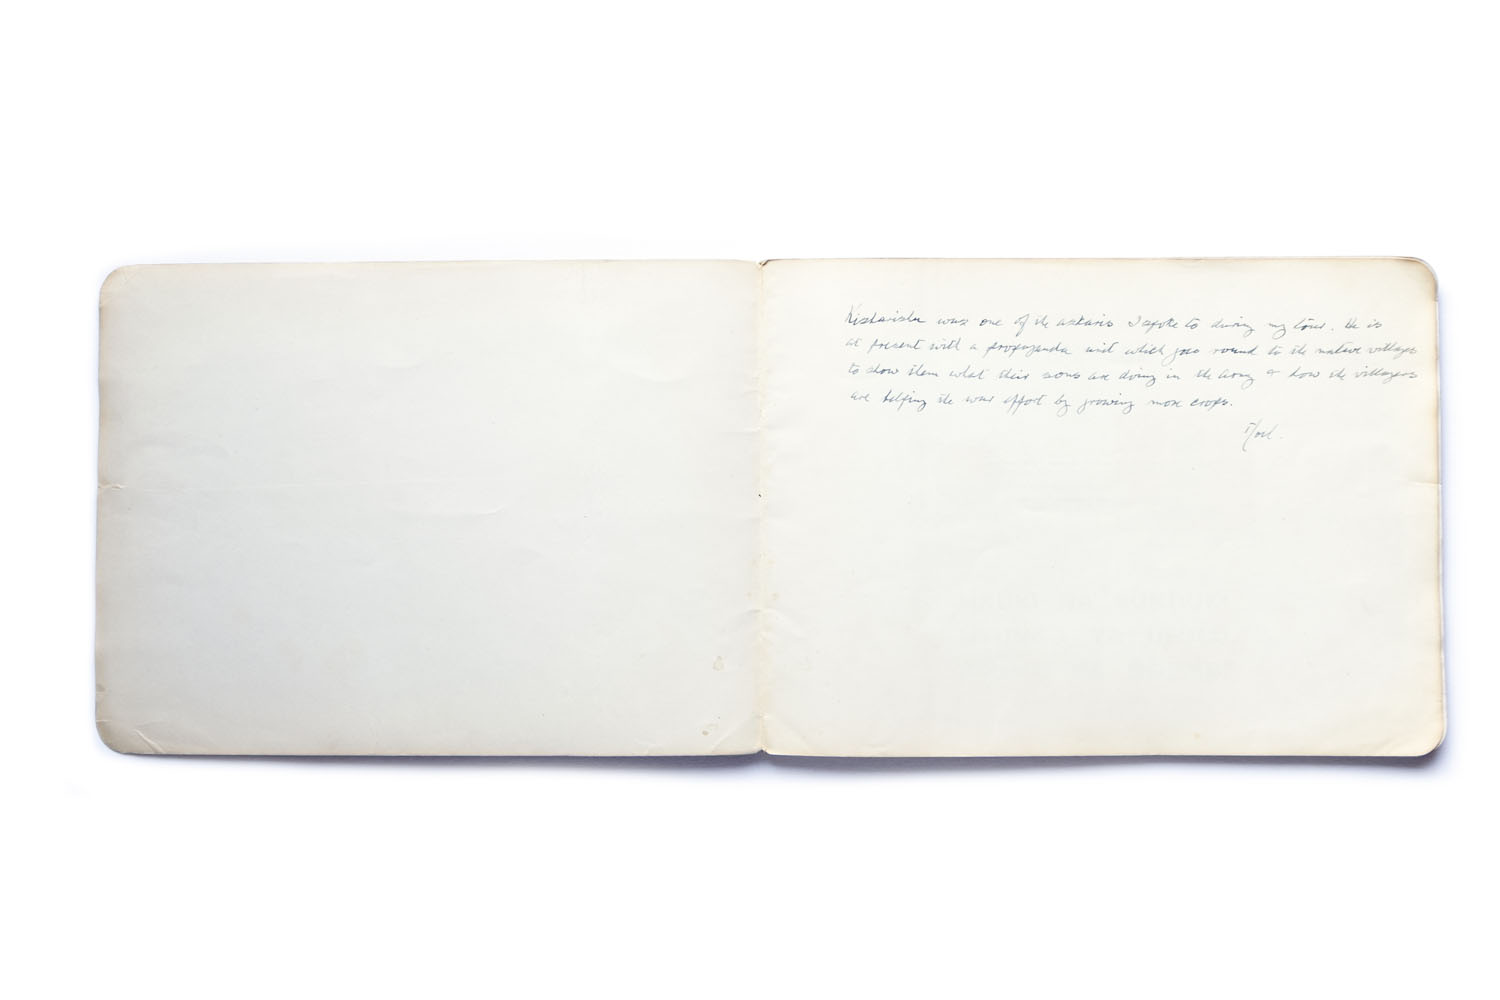 was one of the askaris I spoke to during my tour. He is
at present with a propaganda unit which goes round to the native villages
to show them what their sons are doing in the Army & how the villagers
are helping the war effort by growing more crops.
Noel.